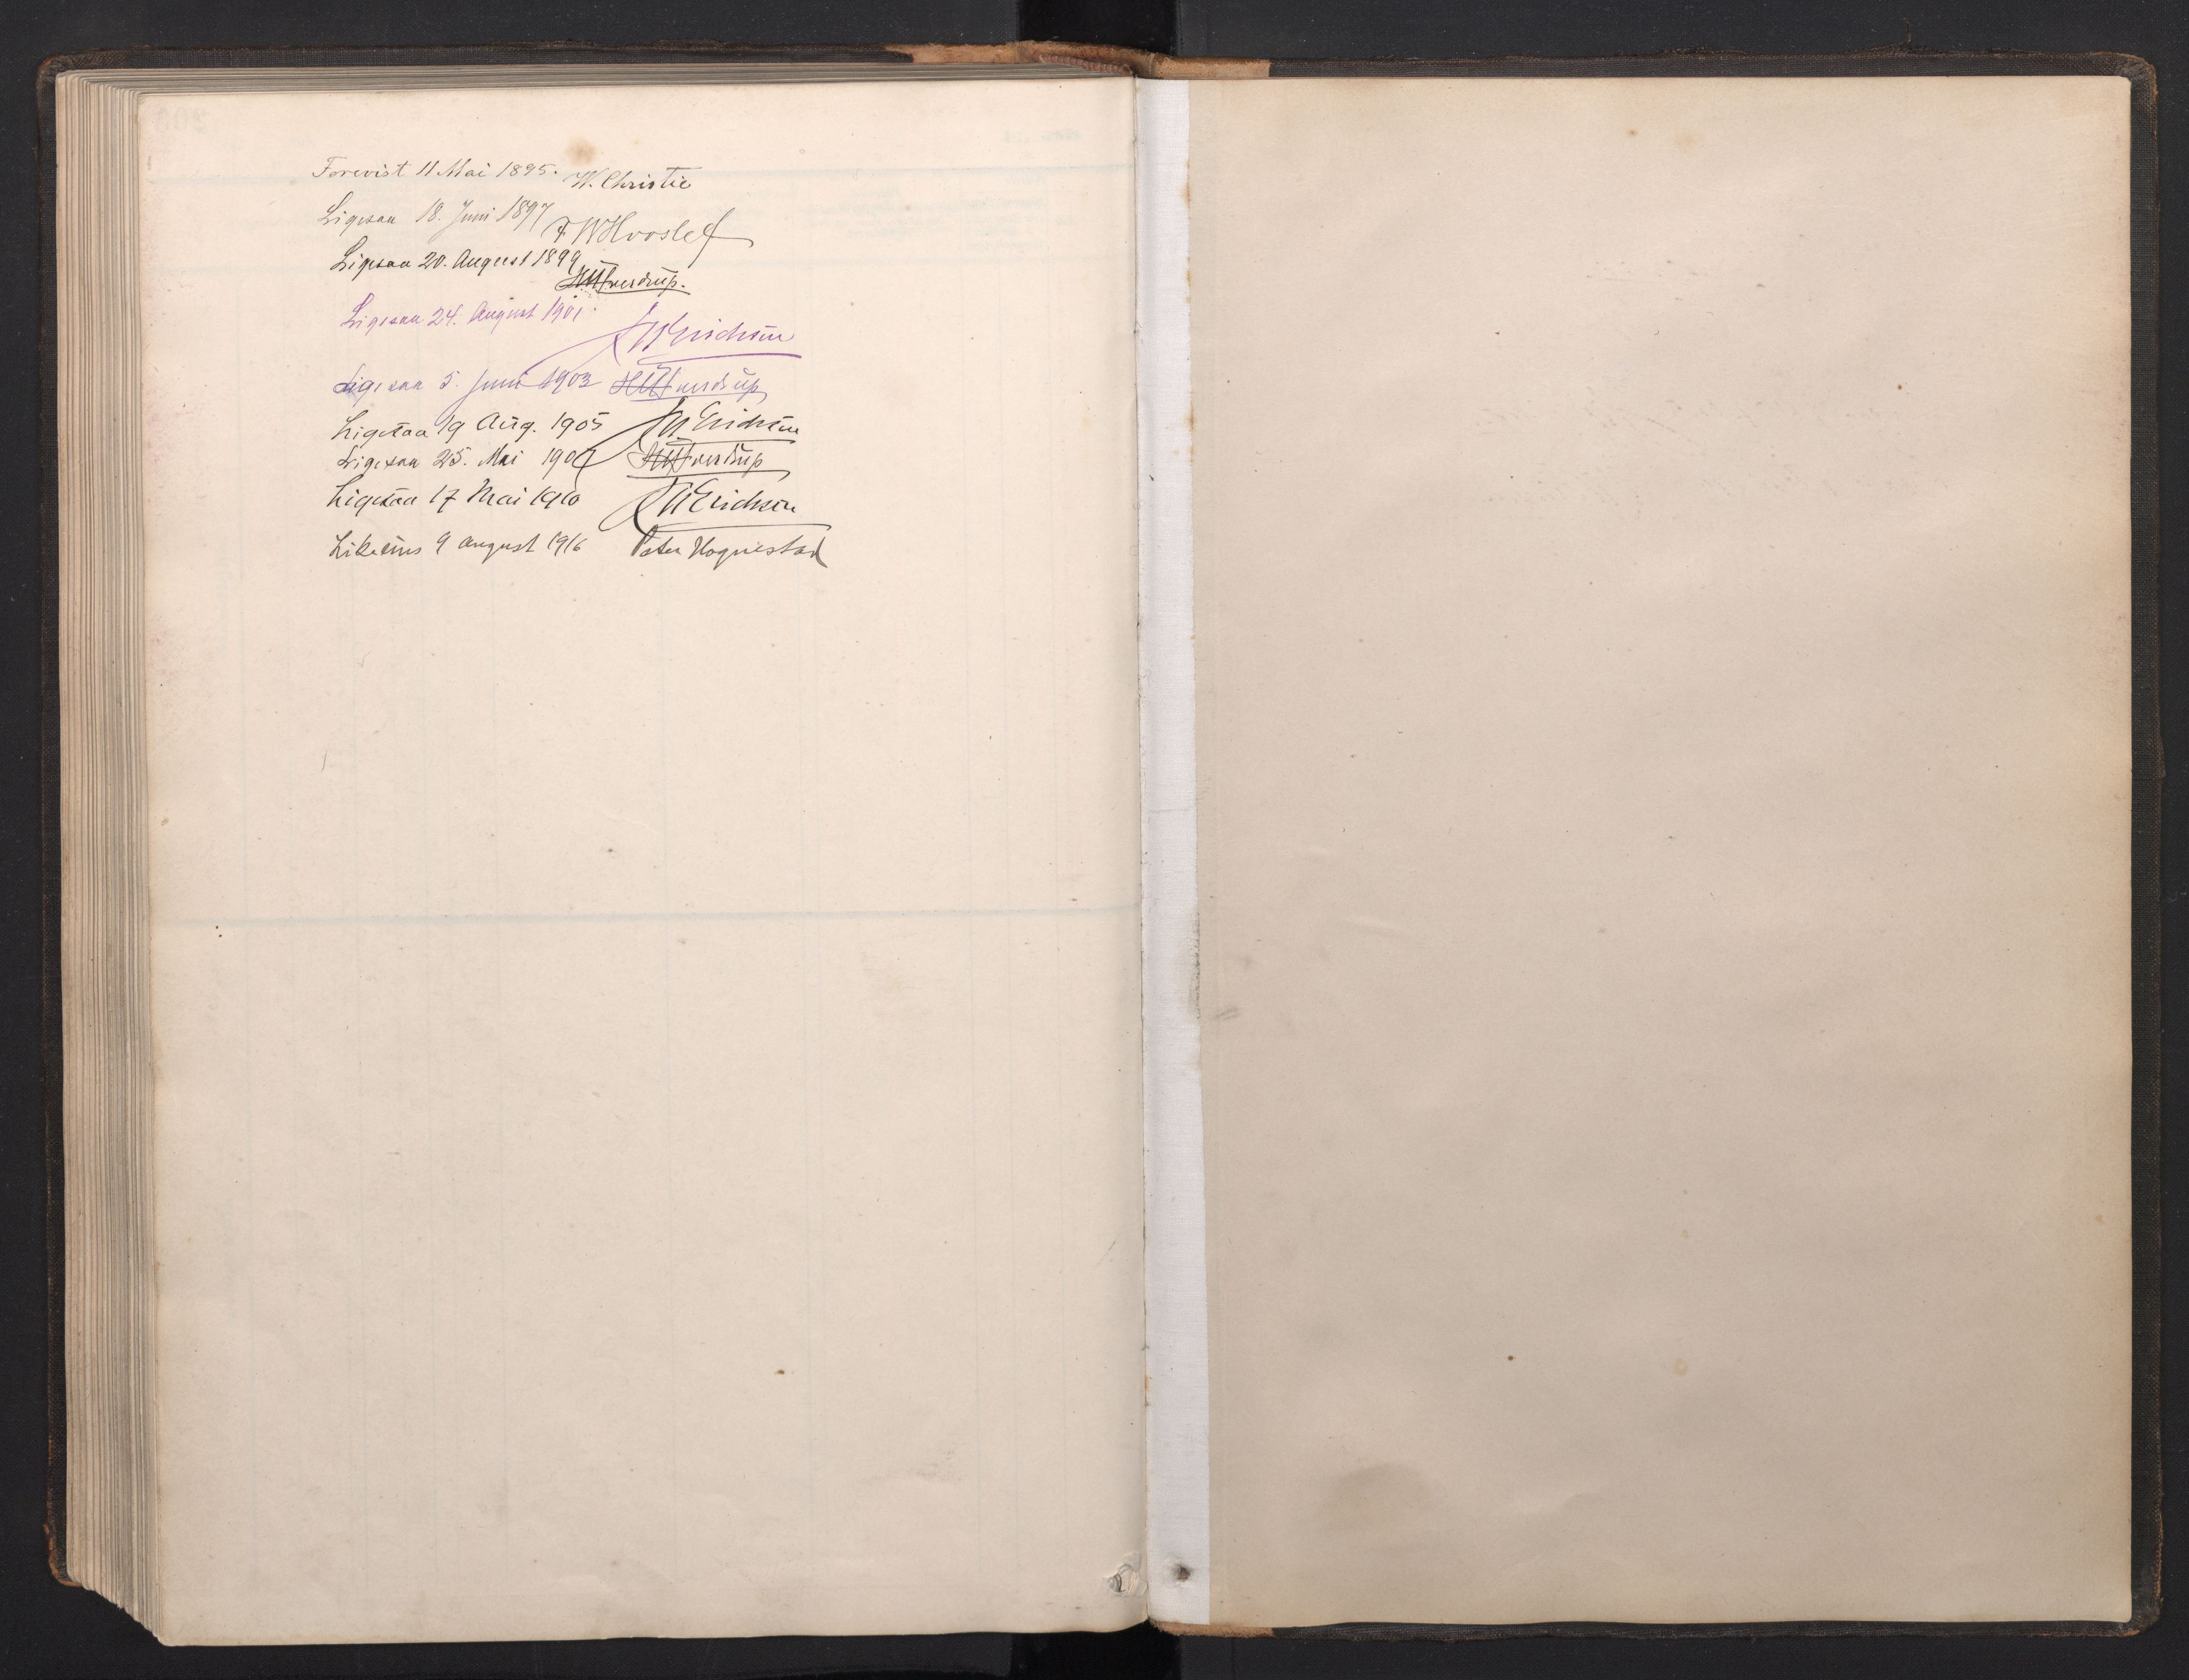 Forevist 11 Mai 1895. W. Christie
Ligesaa 18. Juni 1897 F W Hvoslef
Ligesaa 20. August 1899
Sverdrup.
Ligesaa 24. August 1901.
Erichsen
Ligesaa 5. Juni 1903 Sverdrup
Ligesaa 19 Aug. 1905 Erichsen
Ligesaa 25. Mai Sverdrup
Ligesaa 17 Mai 1910 Erichsen
Likeeins 9 august 1916 Peter Hognestad